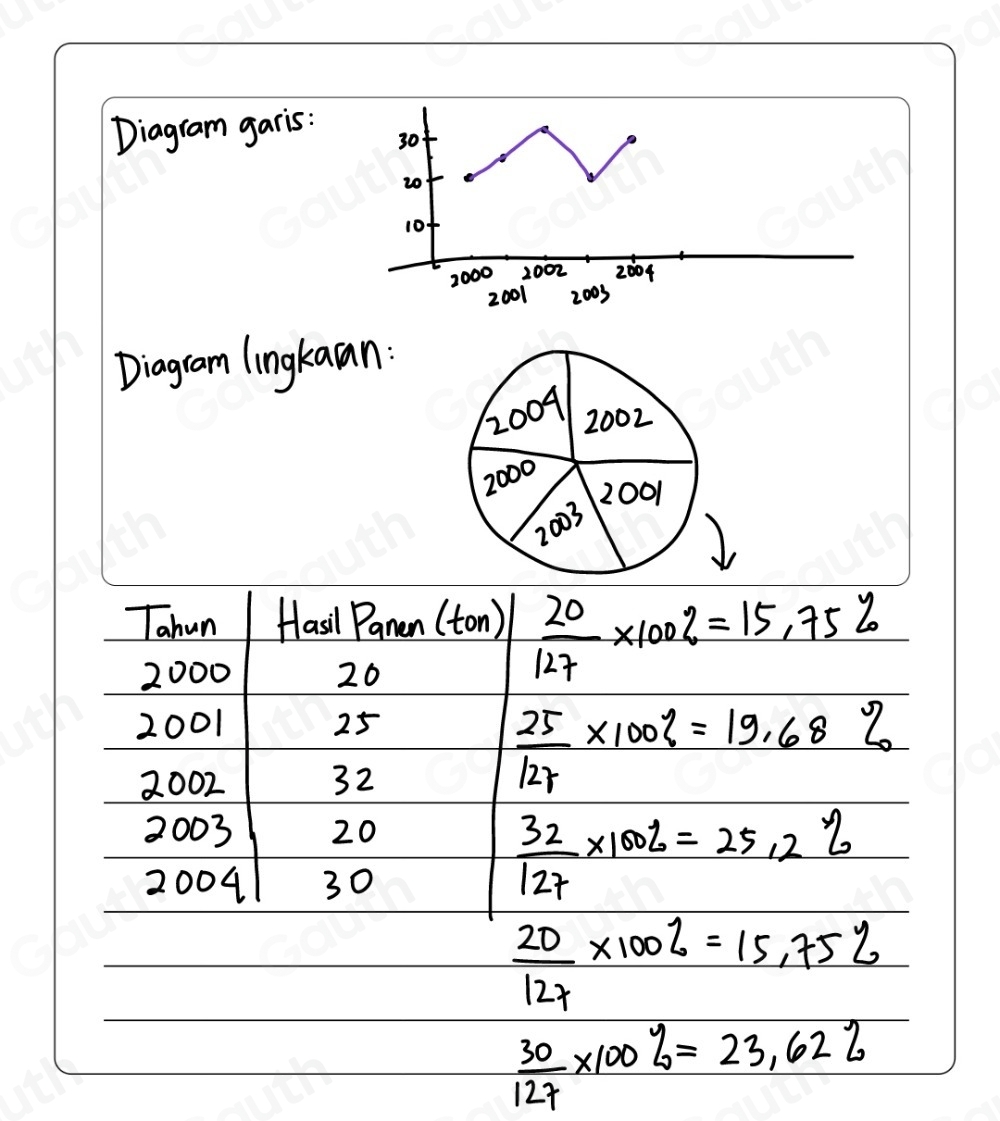 Diagram garis:
30
20
10
2000 2001 2002 2003 2004
Diagram lingkaran:
2004 2002
2000 2003 2001
Tahun Hasil Panen (ton) 20/127 ×100% = 15,75 %
2000 20
2001 25 25/127 ×100% = 19,68 %
2002 32
2003 20 32/127 ×100% = 25,2 %
2004 30
20/127 ×100% = 15,75%
30/127 ×100% = 23,62%
Gauth